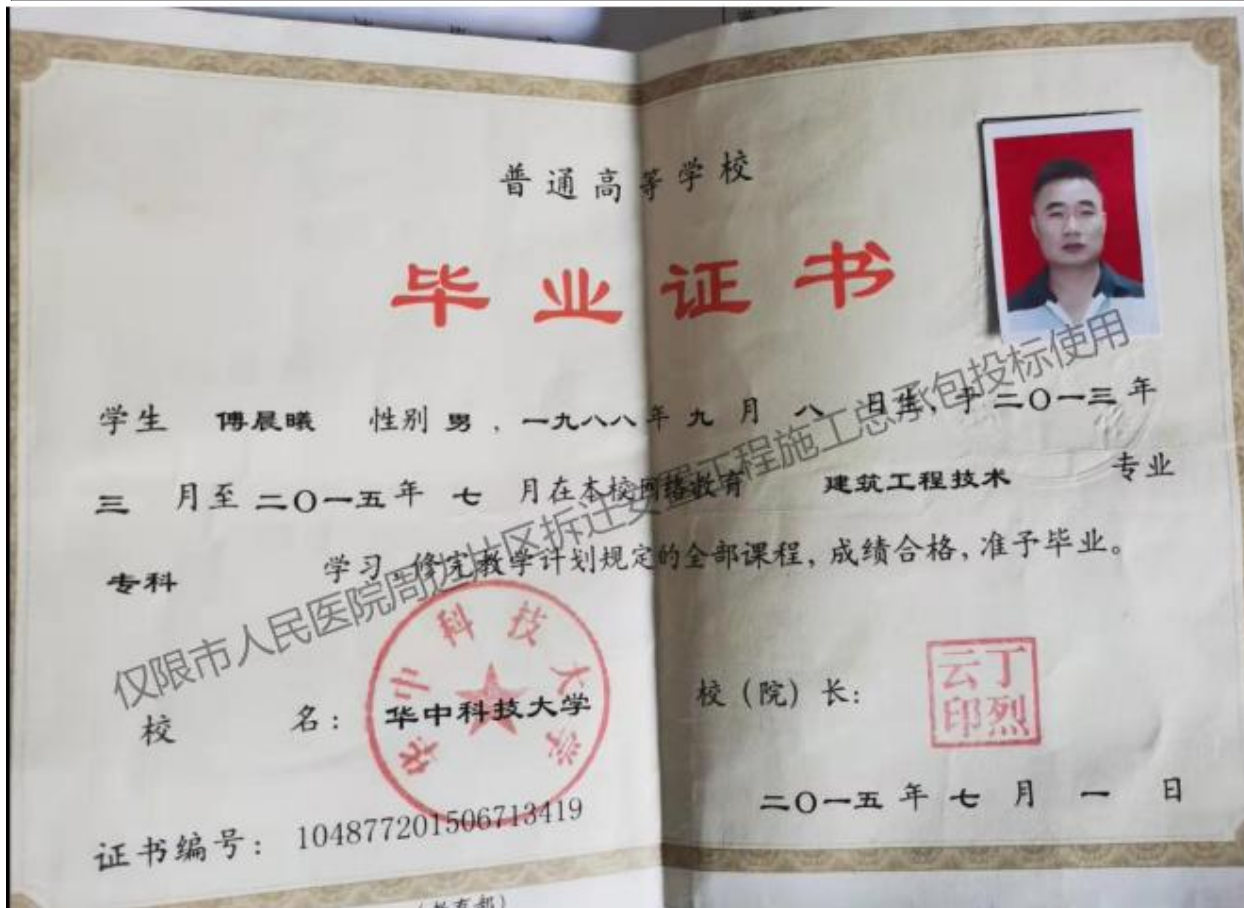 普通高等学校
毕业证书
学生 傅晨曦 性别 男，一九八八年 九 月 八 日生，于 二〇一三 年
三 月至 二〇一五 年 七 月在本校网络教育 建筑工程技术 专业
专科 学习，修完教学计划规定的全部课程，成绩合格，准予毕业。
仅限市人民医院周边片区拆迁安置工程施工总承包投标使用
华中科技大学
校 名：华中科技大学
校（院）长：
丁烈云印
二〇一五 年 七 月 一 日
证书编号：104877201506713419